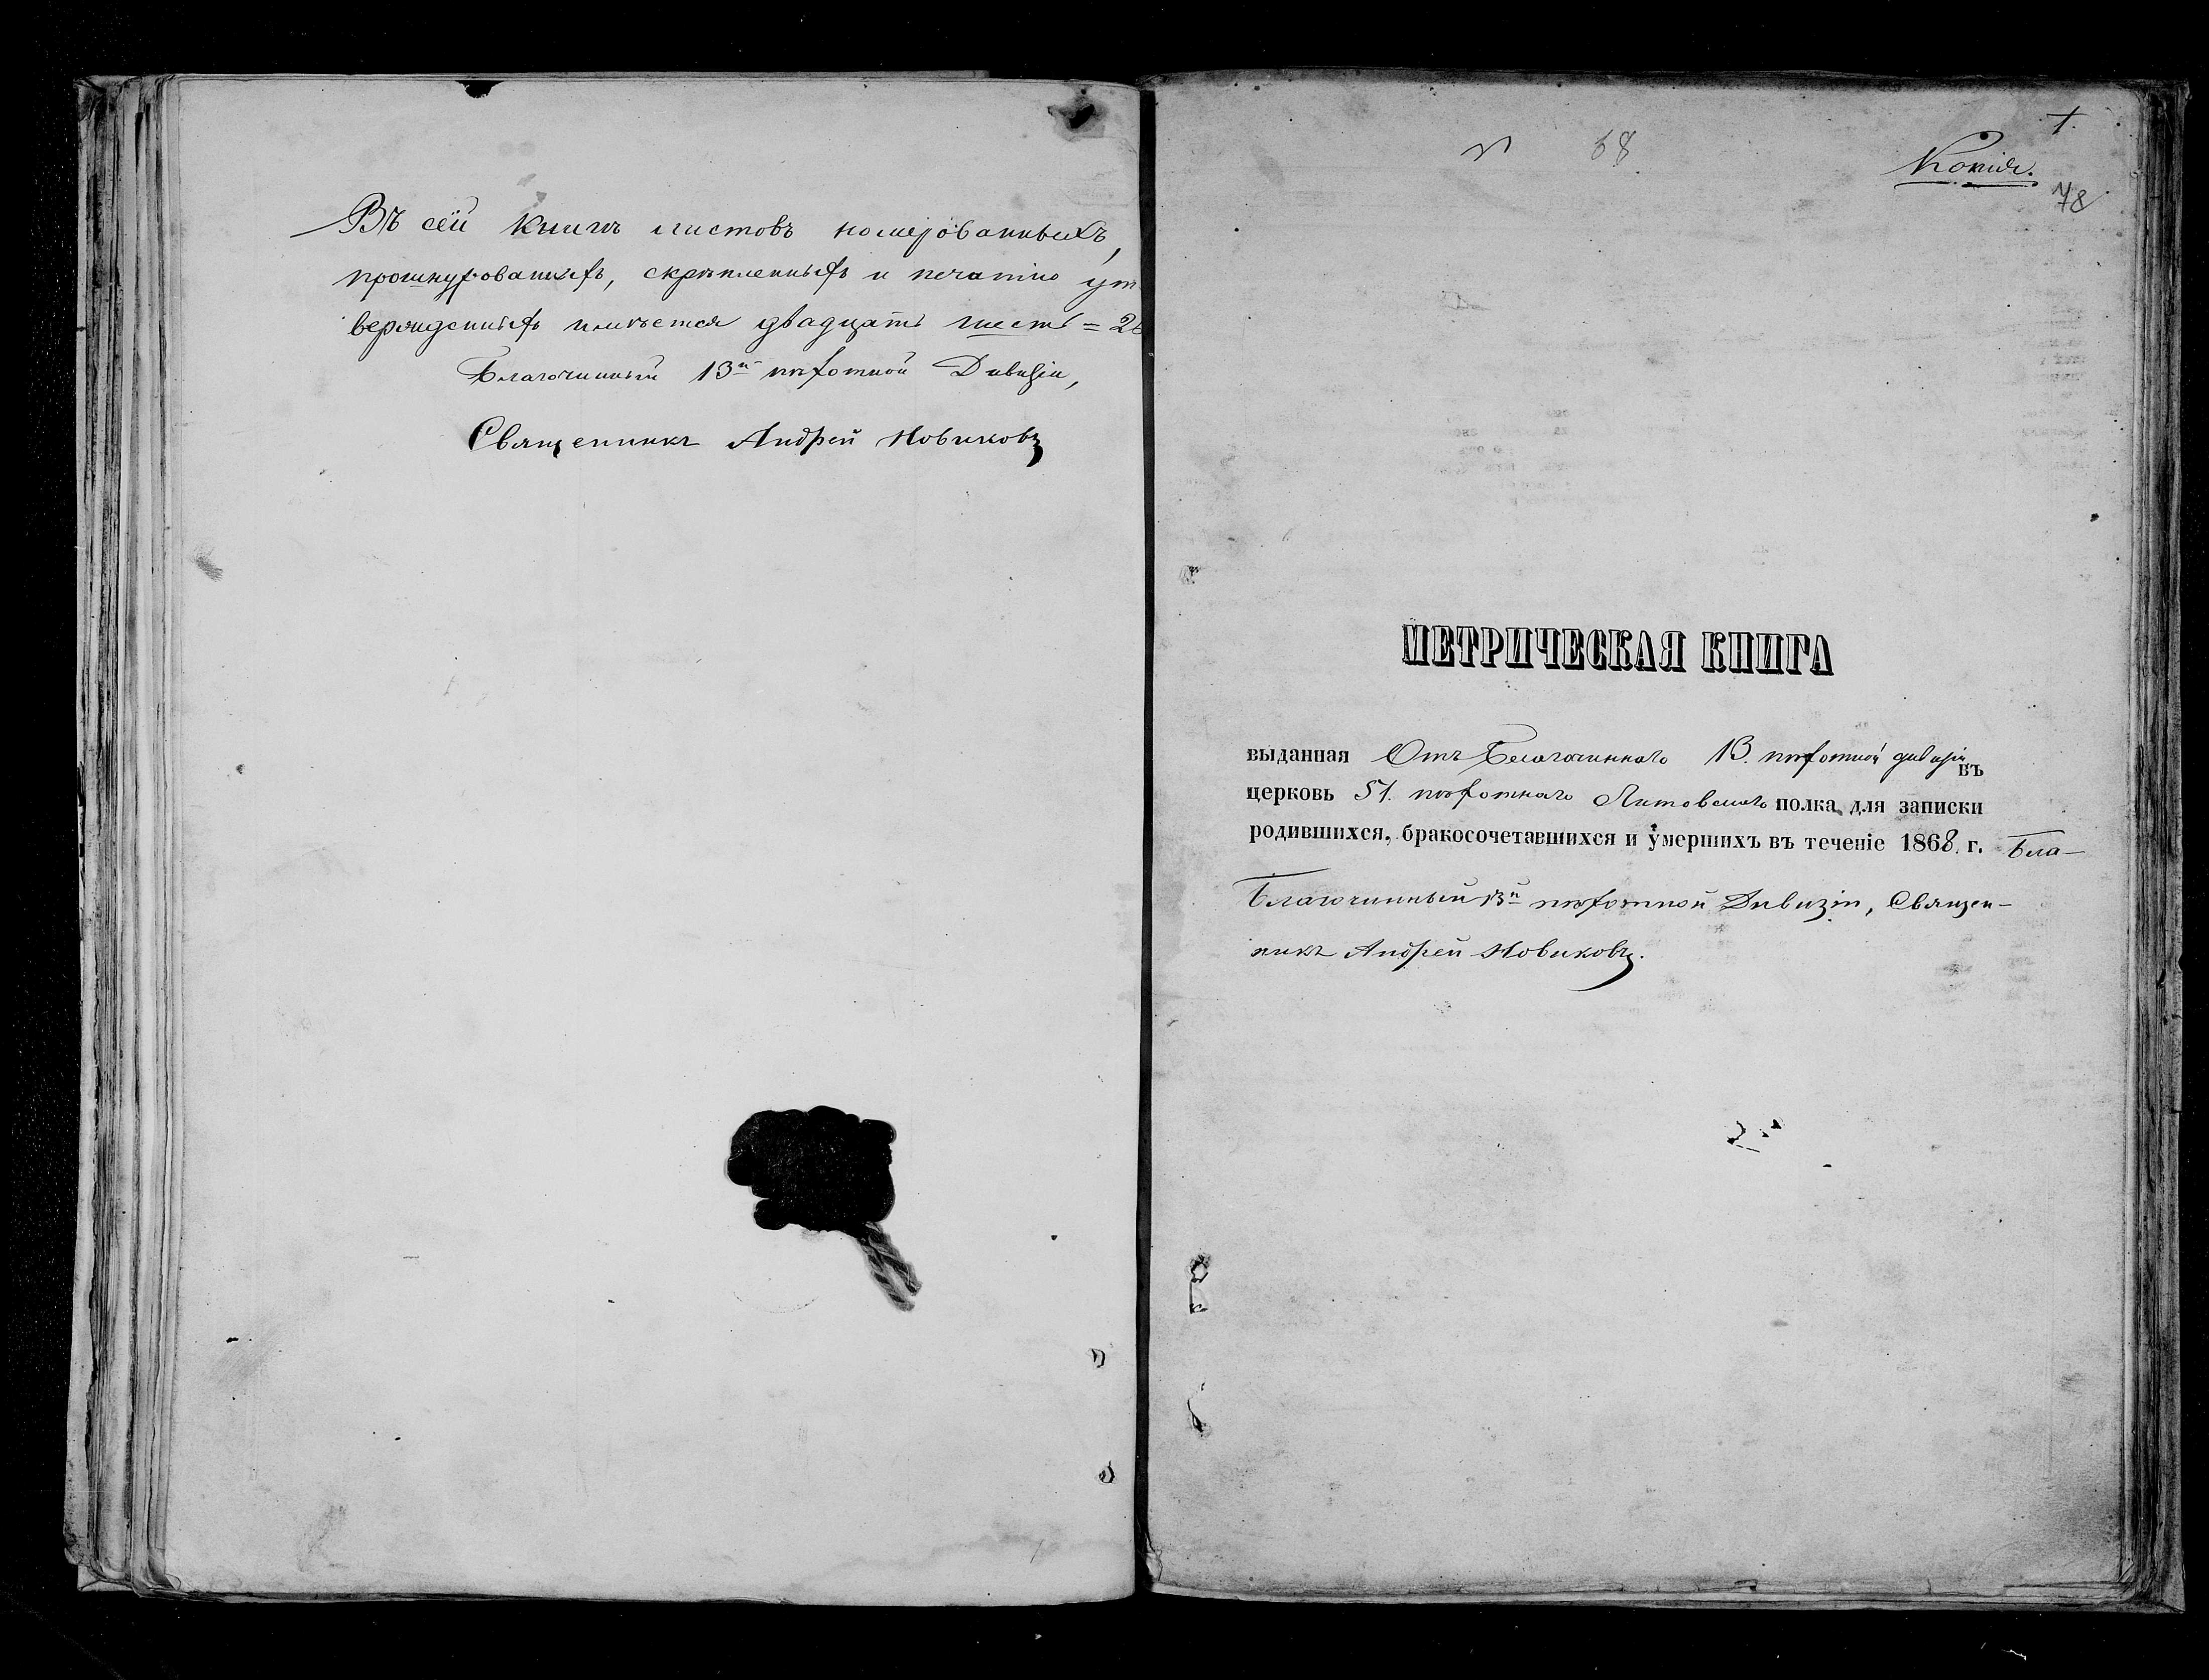 Въ сей книгѣ листовъ номерованныхъ,
прошнурованныхъ, скрѣпленныхъ и печатію ут
вержденныхъ имѣется двадцать шесть = 26
Благочинный 13й пѣхотной Дивизіи,
Священникъ Андрей Новиковъ
1.
№ 68
Копія.
78
МЕТРИЧЕСКАЯ КНИГА
выданная Отъ Благочиннаго 13. пѣхотной дивизіи въ
церковь 51. пѣхотнаго Литовскаго полка для записки
родившихся, бракосочетавшихся и умершихъ въ теченіе 1868. г. Бла-
Благочинный 13й пѣхотной Дивизіи, Священ-
никъ Андрей Новиковъ.